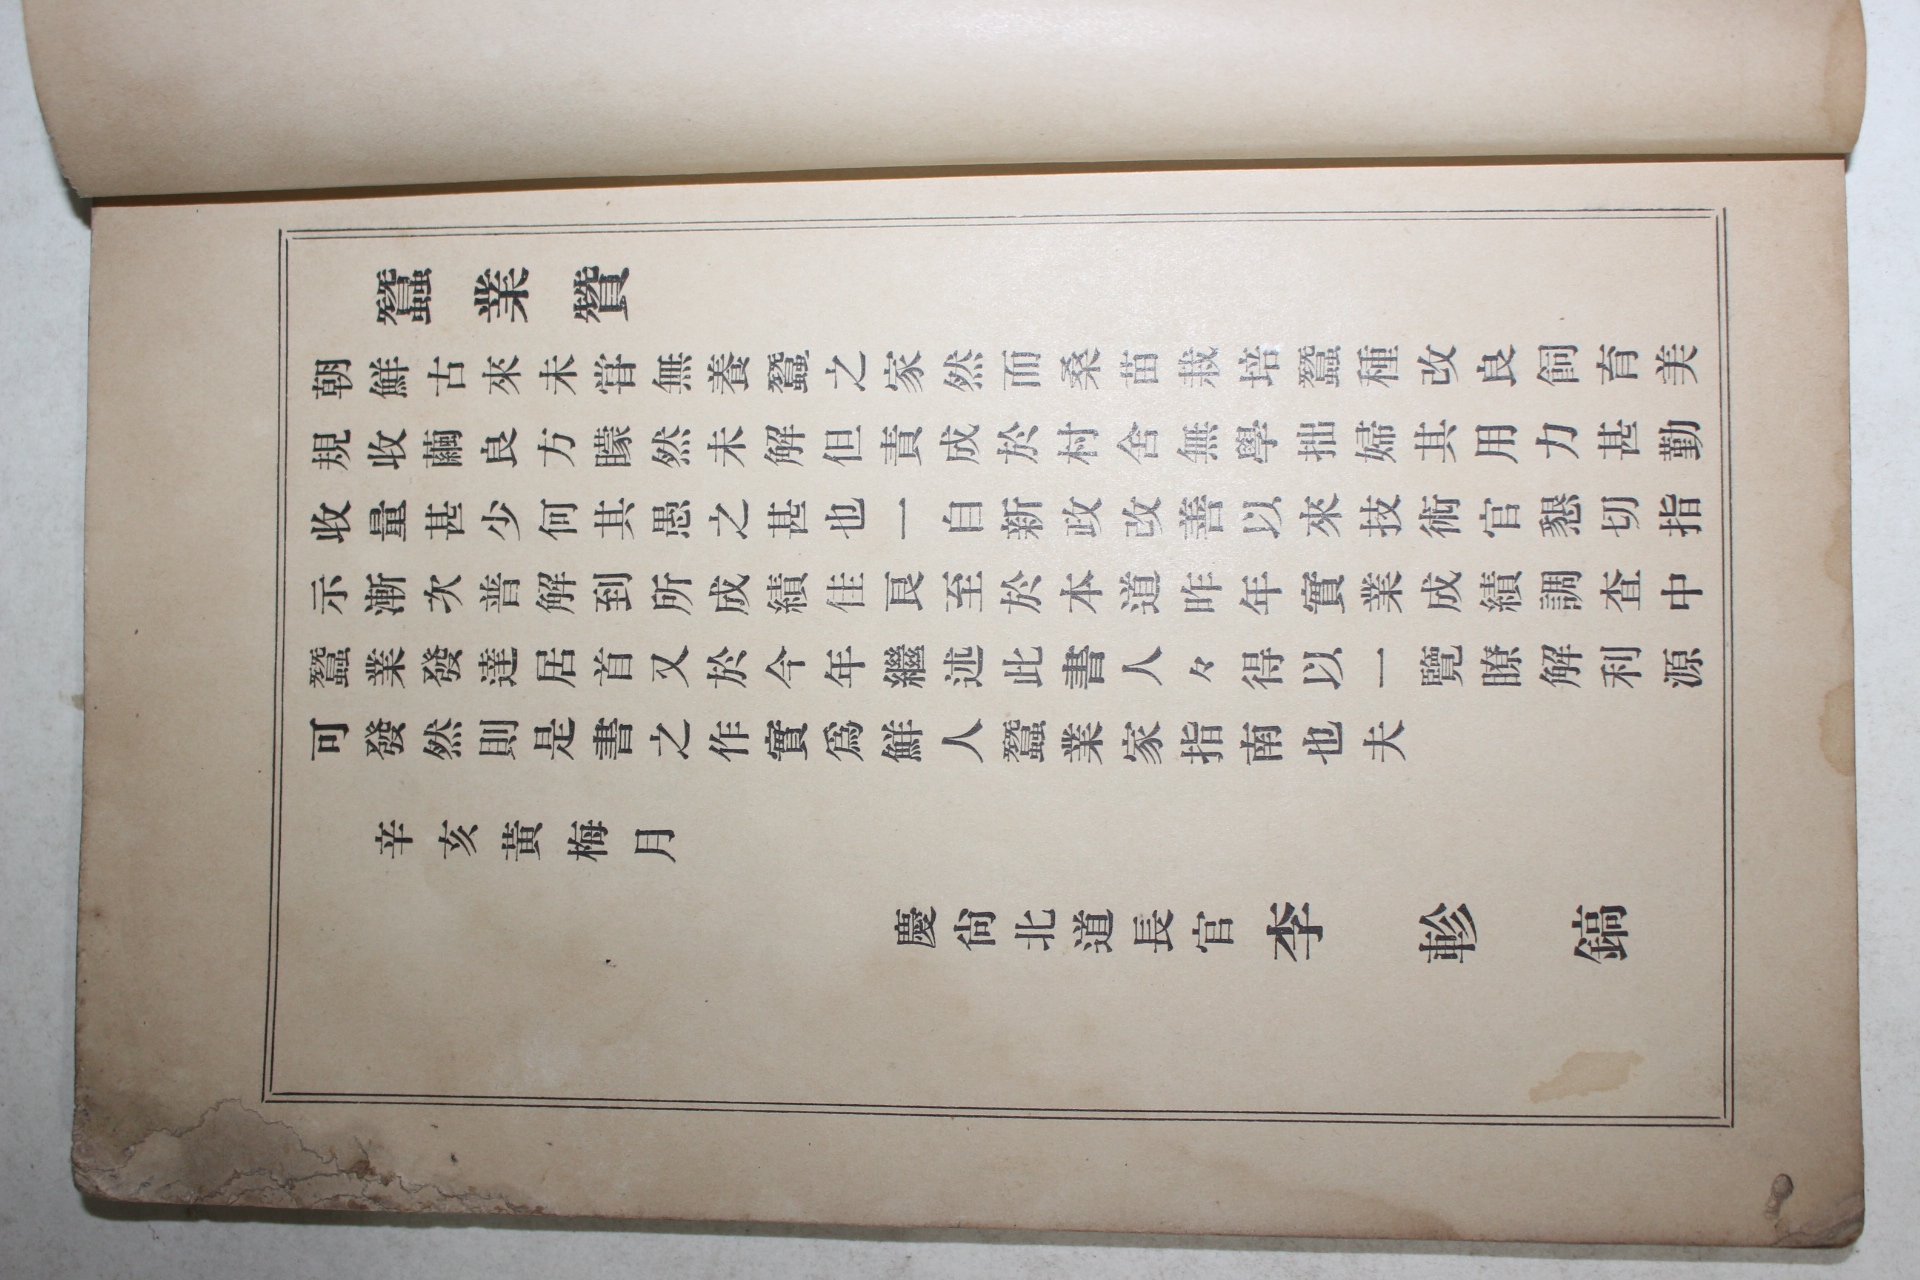 蠶業贊
朝鮮古來未嘗無養蠶之家然而桑苗栽培蠶種改良飼育美
規收繭良方矇然未解但責成於村舍無學拙婦其用力甚勤
收量甚少何其愚之甚也一自新政改善以來技術官懇切指
示漸次普解到所成績佳良至於本道昨年實業成績調査中
蠶業發達居首又於今年繼述此書人々得以一覽瞭解利源
可發然則是書之作實爲鮮人蠶業家指南也夫
辛亥黃梅月
慶尙北道長官李軫鎬